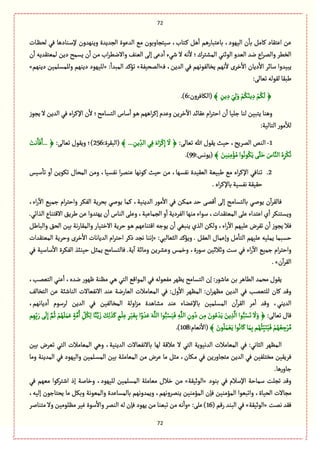 72
من اعتقاد كامل بأن اليهود ، باعتبارهم أهل كتاب ، سيتجاوبون مع الدعوة الجديدة وينهدون لإسنادها في لحظات
الخطر والصراع ضد العدو الوثني المشترك؛ لأنه لا شيء أدعى إلى العنف والاضطراب من أن يسمح دين لمعتقديه أن
يبيدوا سائر الأديان الأخرى لأنهم يخالفونهم في الدين ، فـ«الصحيفة» تؤكد المبدأ: «لليهود دينهم وللمسلمين دينهم»
طبقا لقوله تعالى:
﴿ لَكُمْ دِينُكُمْ وَلِيَ دِينِ ﴾ (الكافرون:6).
وهنا يتبين لنا جليا أن احترام عقائد الآخرين وعدم إكراههم هو أساس التسامح ؛ لأن الإكراه في الدين لا يجوز
للأمور التالية:
1- النص الصريح ، حيث يقول الله تعالى: ﴿ لَا إِكْرَاهَ فِي الدِّينِ ... ﴾ (البقرة:256) ؛ ويقول تعالى: ﴿ ...أَفَأَنتَ
تُكْرِهُ النَّاسَ حَتَّى يَكُونُوا مُؤْمِنِينَ ﴾ (يونس:99).
2. تنافي الإكراه مع طبيعة العقيدة نفسها ، من حيث كونها عنصرا نفسيا ، ومن المحال تكوين أو تأسيس
حقيقة نفسية بالإكراه .
فالقرآن يوصي بالتسامح إلى أقصى حد ممكن في الأمور الدينية ، كما يوصي بحرية الفكر واحترام جميع الآراء ،
ويستنكر أي اعتداء على المعتقدات ، سواء منها الفردية أو الجماعية ، وعلى الناس أن يهتدوا عن طريق الاقتناع الذاتي.
فلا يجوز أن تفرض عليهم الآراء ، ولكن الذي ينبغي أن يوجه اقتناعهم هو حرية الاختيار والمقارنة بين الحق والباطل
حسبما يمليه عليهم التأمل وإعمال العقل ، ويؤكد الثعالبي: «إننا نجد ذكر احترام الديانات الأخرى وحرية المعتقدات
واحترام جميع الآراء في ست وثلاثين سورة ، وخمس وعشرين ومائة آية. فالتسامح يمثل حينئذ الفكرة الأساسية في
القرآن» .
يقول محمد الطاهر بن عاشور: إن التسامح يظهر مفعوله في المواقع التي هي مظنة ظهور ضده ، أعني التعصب ،
وقد كان للتعصب في الدين مظهران: المظهر الأول: في المعاملات العارضة عند الانفعالات الناشئة عن التخالف
الديني ، وقد أمر القرآن المسلمين بالإغضاء عند مشاهدة مزاولة المخالفين في الدين لرسوم أديانهم ،
قال تعالى: ﴿ وَلَا تَسُبُّوا الَّذِينَ يَدْعُونَ مِن دُونِ اللَّهِ فَيَسُبُّوا اللَّهَ عَدْوًا بِغَيْرِ عِلْمٍ كَذَلِكَ زَيَّنَّا لِكُلِّ أُمَّةٍ عَمَلَهُمْ ثُمَّ إِلَى رَبِّهِم
مَّرْجِعُهُمْ فَيُنَبِّئُهُم بِمَا كَانُوا يَعْمَلُونَ ﴾ (الأنعام:108).
المظهر الثاني: في المعاملات الدنيوية التي لا علاقة لها بالانفعالات الدينية ، وهي المعاملات التي تعرض بين
فريقين مختلفين في الدين متجاورين في مكان ، مثل ما عرض من المعاملة بين المسلمين واليهود في المدينة وما
جاورها.
وقد تجلت سماحة الإسلام في بنود «الوثيقة» من خلال معاملة المسلمين لليهود ، وخاصة إذ اشتركوا معهم في
مجالات الحياة ، واتبعوا المؤمنين فإن المؤمنين ينصرونهم ، ويمدونهم بالمساعدة والمعونة وبكل ما يحتاجون إليه ،
فقد نصت «الوثيقة» في البند رقم (16) على: «وأنه من تبعنا من يهود فإن له النصر والأسوة غير مظلومين ولا متناصر
72